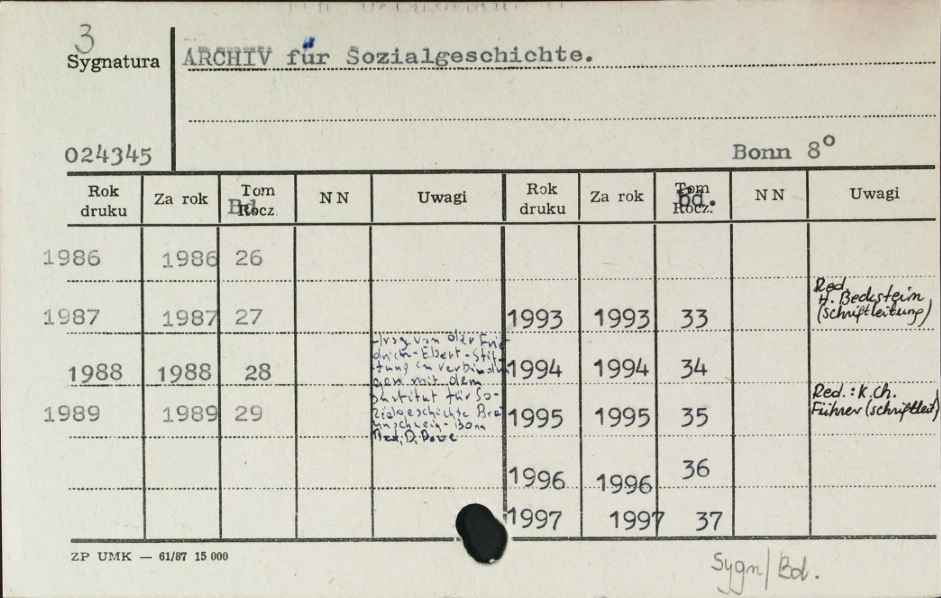 3
Sygnatura
ARCHIV für Sozialgeschichte.
024345
Bonn 8°
Rok druku Za rok Tom Rocz. Bd. NN Uwagi Rok druku Za rok Tom Rocz. Bd. NN Uwagi
1986 1986 26
Red.
H. Beckstein
(Schriftleitung)
1987 1987 27 1993 1993 33
Hrsg von der Frie-
drich-Ebert-Stif-
tung in Verbindun-
1988 1988 28 1994 1994 34
gen mit dem
Institut für So-
Red.: K.Ch.
Führer (Schriftleit)
1989 1989 29 1995 1995 35
zialgeschichte Bra-
unschweig-Bonn
Red. D. Dowe
1996 1996 36
1997 1997 37
ZP UMK — 61/87 15 000
Sygn/Bd.